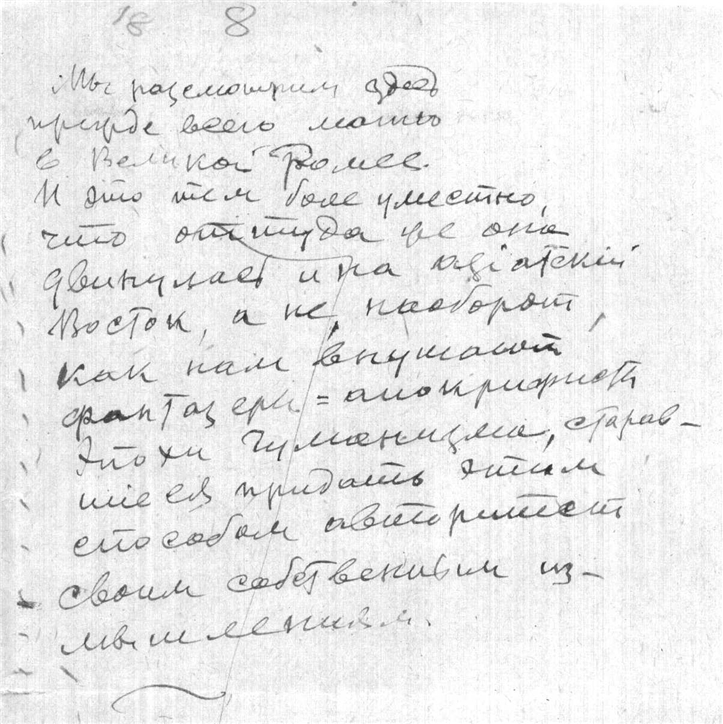 18 8
Мы рассмотрим здесь
прежде всего
в Великой Ромее.
И это тем более уместно,
что оттуда же она
двинулась и на азіатскій
Восток, а не наоборот,
как нам внушают
фантазеры = апокрифисты
эпохи Гуманизма, старав-
шіеся придать этим
способом авторитет
своим собственным из-
мышлениям.